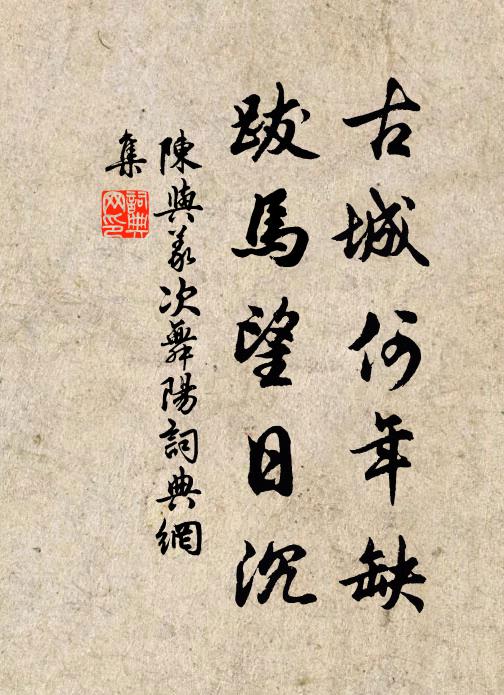 古城何年缺
跋馬望日沉
陳與義次舞陽詞典網
集
詞典
网印